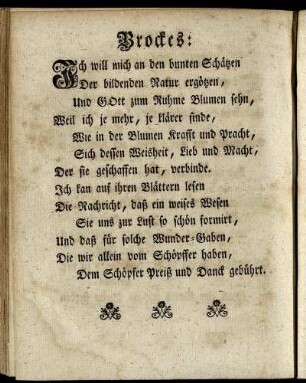 Brockes:
Ich will mich an den bunten Schätzen
Der bildenden Natur ergötzen,
Und GOtt zum Ruhme Blumen sehn,
Weil ich je mehr, je klärer finde,
Wie in der Blumen Krafft und Pracht,
Sich dessen Weisheit, Lieb und Macht,
Der sie geschaffen hat, verbinde.
Ich kan auf ihren Blättern lesen
Die Nachricht, daß ein weises Wesen
Sie uns zur Lust so schön formirt,
Und daß für solche Wunder-Gaben,
Die wir allein vom Schöpffer haben,
Dem Schöpfer Preiß und Danck gebührt.